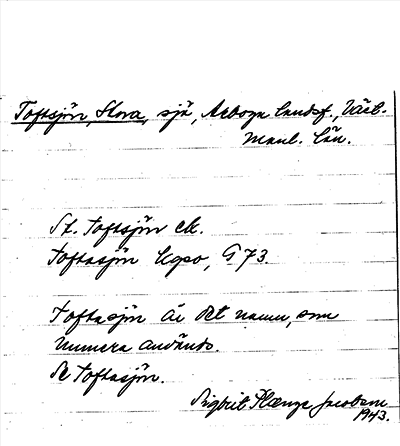 Toftsjön, Stora, sjö, Arboga landsf., Väst-
manl. län.
St. Toftsjön ek.
Toftasjön Uppo, G 73.
Toftasjön är det namn, som
numera används.
Se Toftasjön.
Sigbrit Plænge Jacobson
1943.